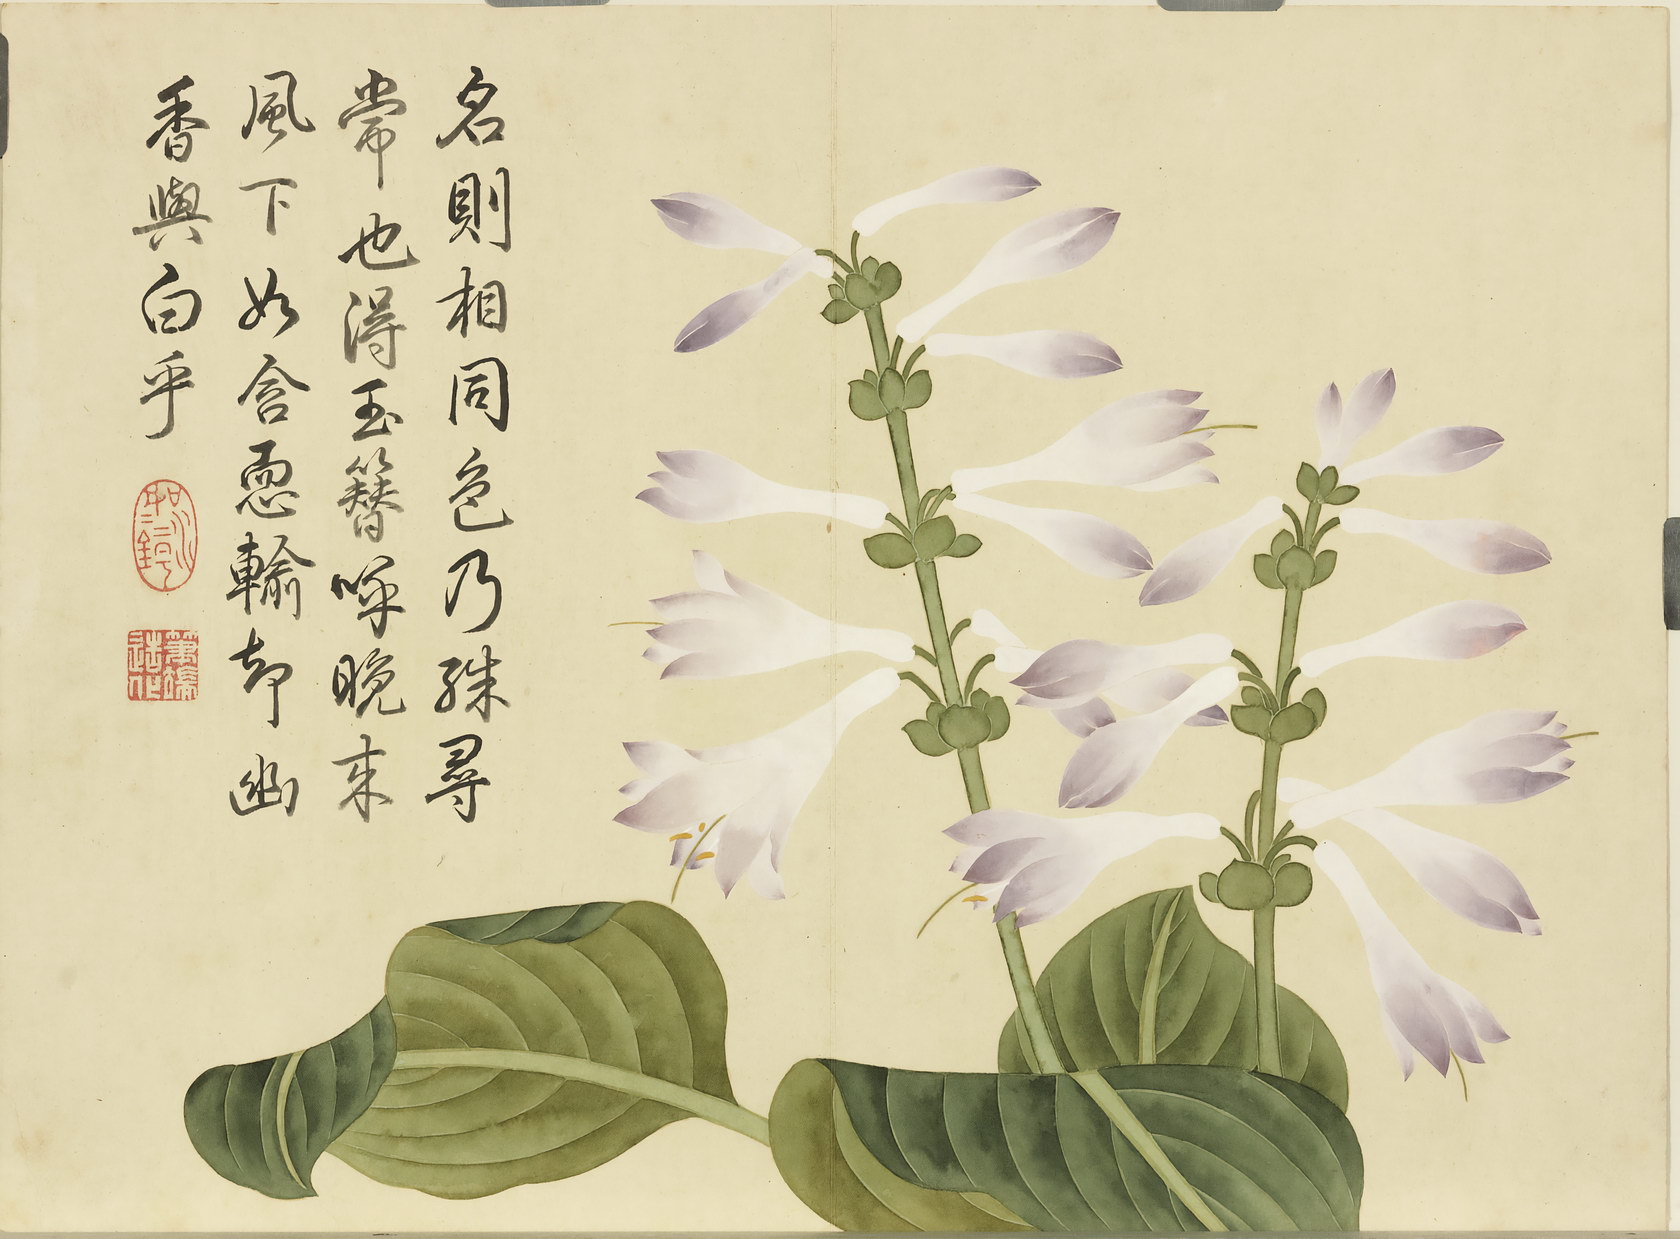 名則相同色乃殊尋
常也得玉簪呼晚來
風下如含恧輸却幽
香與白乎
筆端造化